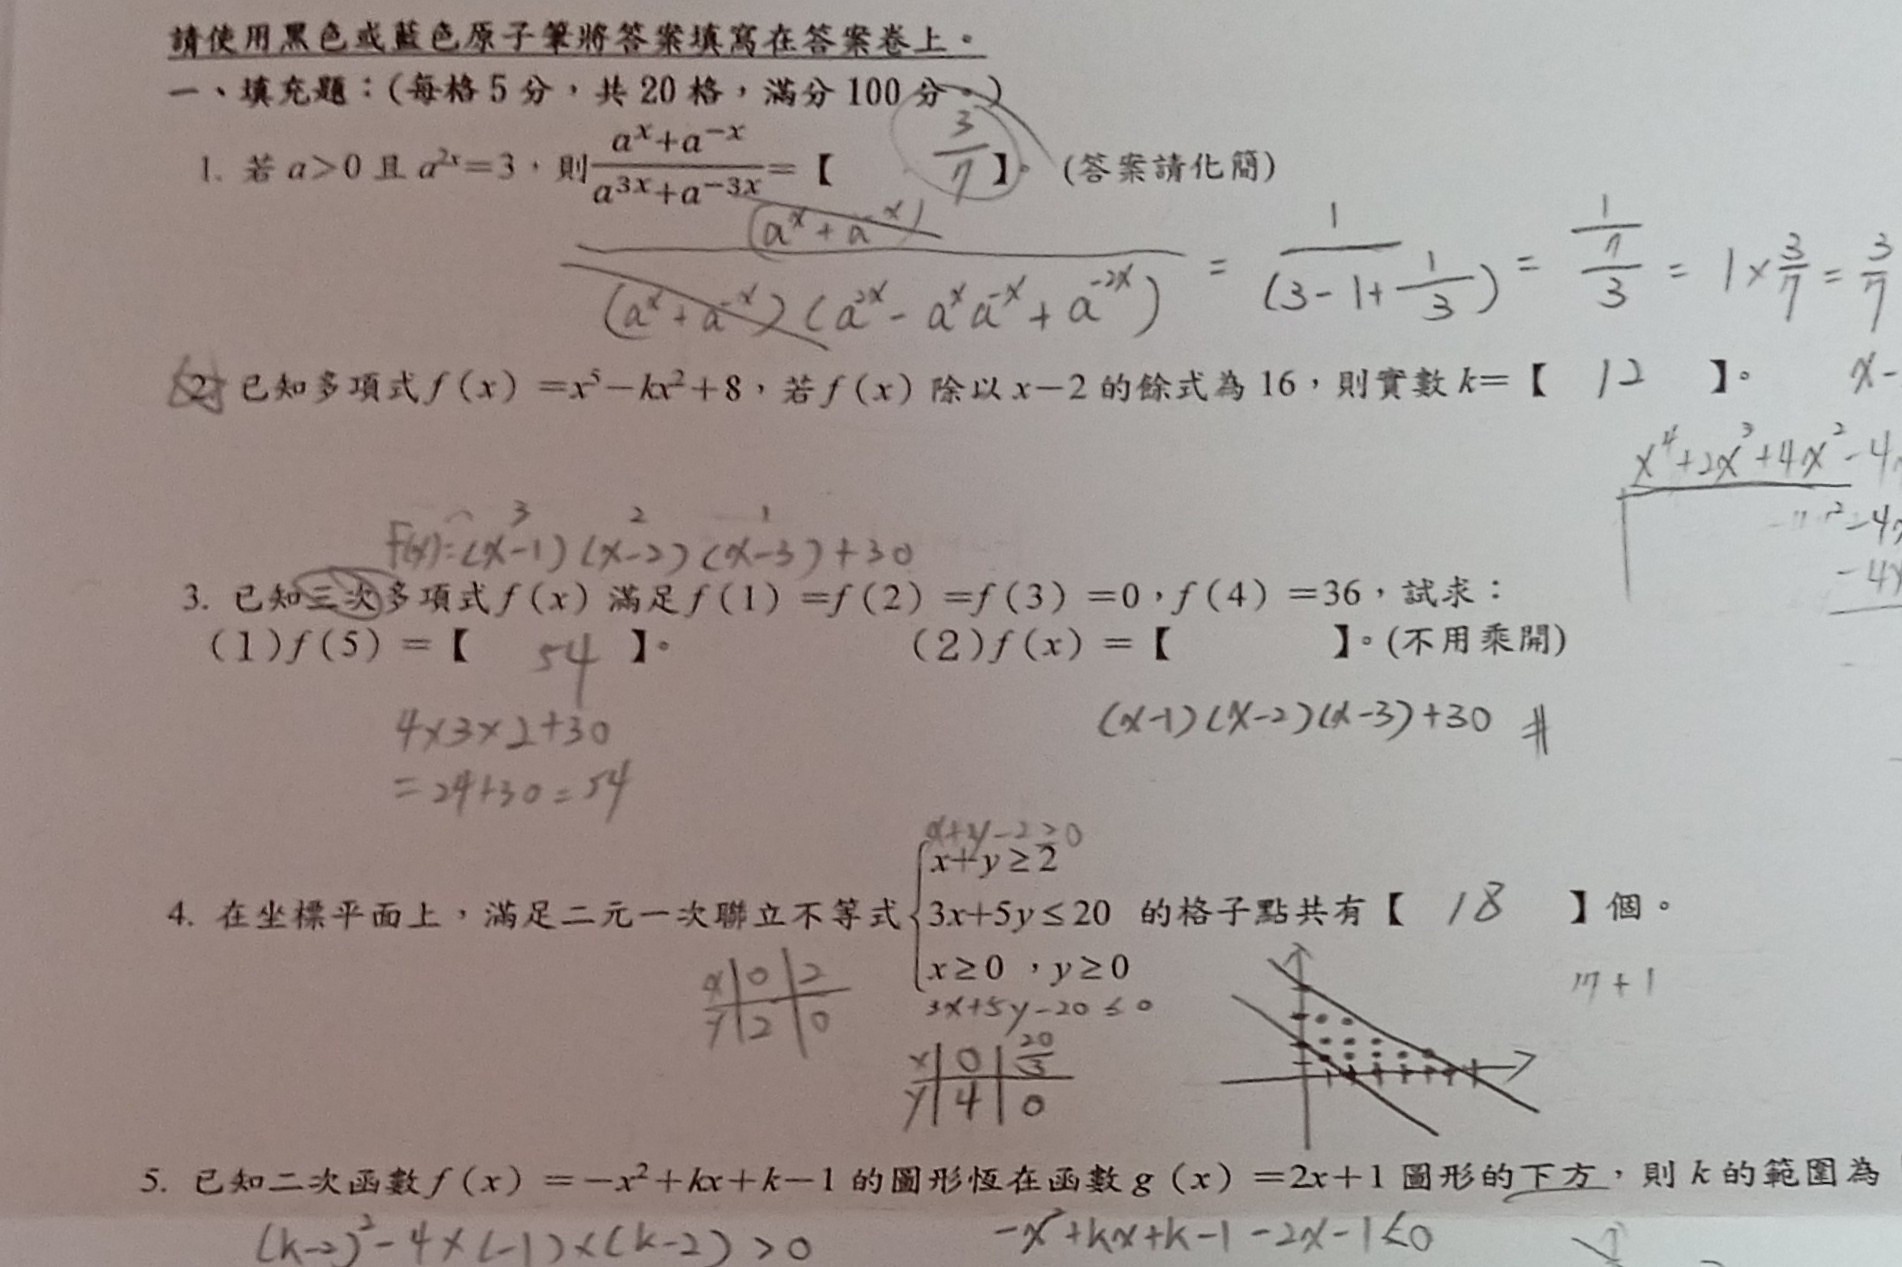 請使用黑色或藍色原子筆將答案填寫在答案卷上。
一、填充題：(每格5分，共20格，滿分100分。)
1. 若 a>0 且 a^{2x}=3，則 \frac{a^x+a^{-x}}{a^{3x}+a^{-3x}}=【 3/7 】。(答案請化簡)
\frac{(a^x+a^{-x})}{(a^x+a^{-x})(a^{2x}-a^x a^{-x}+a^{-2x})} = \frac{1}{(3-1+\frac{1}{3})} = \frac{1}{\frac{7}{3}} = 1×\frac{3}{7} = \frac{3}{7}
2. 已知多項式 f(x)=x^5-kx^2+8，若 f(x) 除以 x-2 的餘式為 16，則實數 k=【 12 】。
x-
x^4+2x^3+4x^2-4
-4
F(x)=(x-1)(x-2)(x-3)+30
3 2 1
3. 已知三次多項式 f(x) 滿足 f(1)=f(2)=f(3)=0，f(4)=36，試求：
(1) f(5)=【 54 】。 (2) f(x)=【 】。(不用乘開)
(x-1)(x-2)(x-3)+30 #
4×3×2+30
=24+30=54
x+y-2≥0
4. 在坐標平面上，滿足二元一次聯立不等式 { x+y≥2
3x+5y≤20 的格子點共有【 18 】個。
x≥0，y≥0
17+1
3x+5y-20≤0
x 0 2
y 2 0
x 0 20/3
y 4 0
5. 已知二次函數 f(x)=-x^2+kx+k-1 的圖形恆在函數 g(x)=2x+1 圖形的下方，則 k 的範圍為
(k-2)^2-4×(-1)×(k-2)>0 -x^2+kx+k-1-2x-1<0